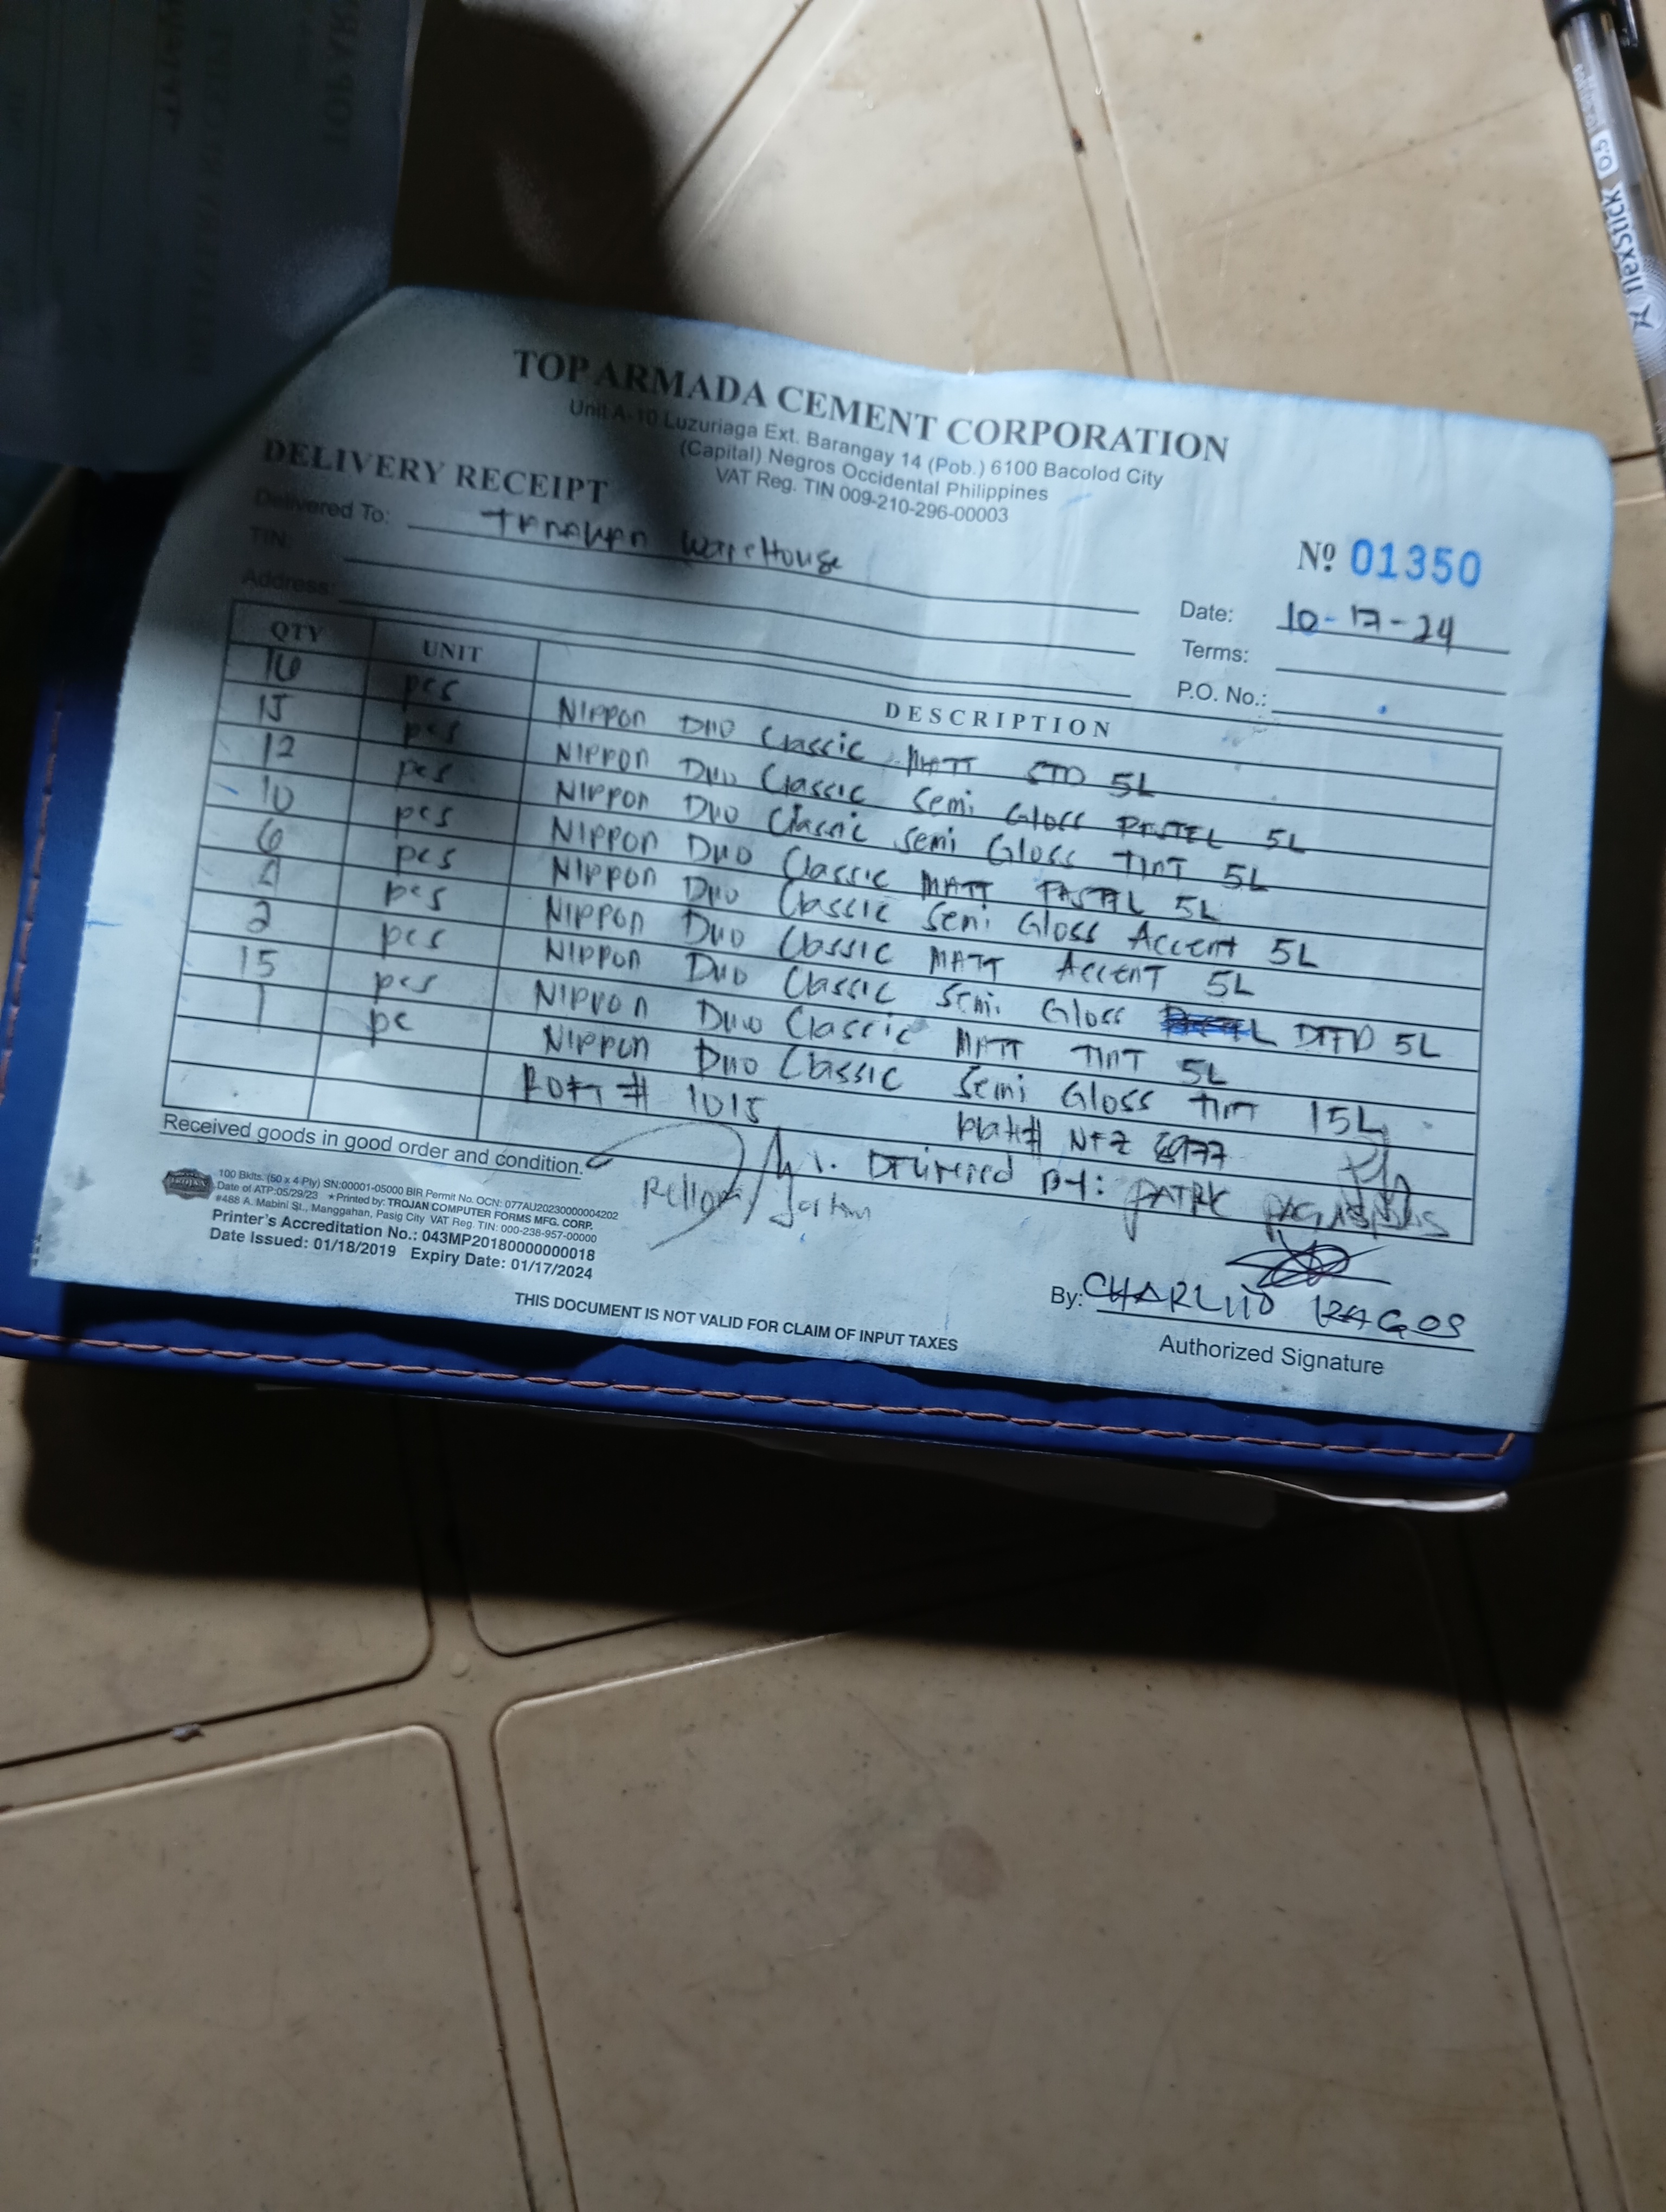 TOP ARMADA CEMENT CORPORATION
Unit A-10 Luzuriaga Ext. Barangay 14 (Pob.) 6100 Bacolod City
(Capital) Negros Occidental Philippines
VAT Reg. TIN 009-210-296-00003
DELIVERY RECEIPT
Nº 01350
Delivered To: TANAWAN WAREHOUSE
Date: 10-17-24
TIN:
Terms:
Address:
P.O. No.:
QTY UNIT DESCRIPTION
16 pcs NIPPON DUO Classic MATT STD 5L
15 pcs NIPPON DUO Classic Semi Gloss PASTEL 5L
12 pcs NIPPON DUO Classic Semi Gloss TINT 5L
10 pcs NIPPON DUO Classic MATT PASTAL 5L
6 pcs NIPPON DUO Classic Semi Gloss Accent 5L
4 pcs NIPPON DUO Classic MATT ACCENT 5L
2 pcs NIPPON DUO Classic Semi Gloss 5L
15 pcs NIPPON DUO Classic MATT TINT 5L
1 pc NIPPON DUO Classic Semi Gloss TINT 15L
# 1015 Plate# NFZ
By: PATRK
Received goods in good order and condition.
100 Bklts. (50 x 4 Ply) SN:00001-05000 BIR Permit No. OCN: 077AU20230000004202
Date of ATP:05/29/23 ★Printed by: TROJAN COMPUTER FORMS MFG. CORP.
#488 A. Mabini St., Manggahan, Pasig City VAT Reg. TIN: 000-238-957-00000
Printer's Accreditation No.: 043MP20180000000018
Date Issued: 01/18/2019 Expiry Date: 01/17/2024
By: CHARLITO RAGOS
Authorized Signature
THIS DOCUMENT IS NOT VALID FOR CLAIM OF INPUT TAXES
flexstick 0.5